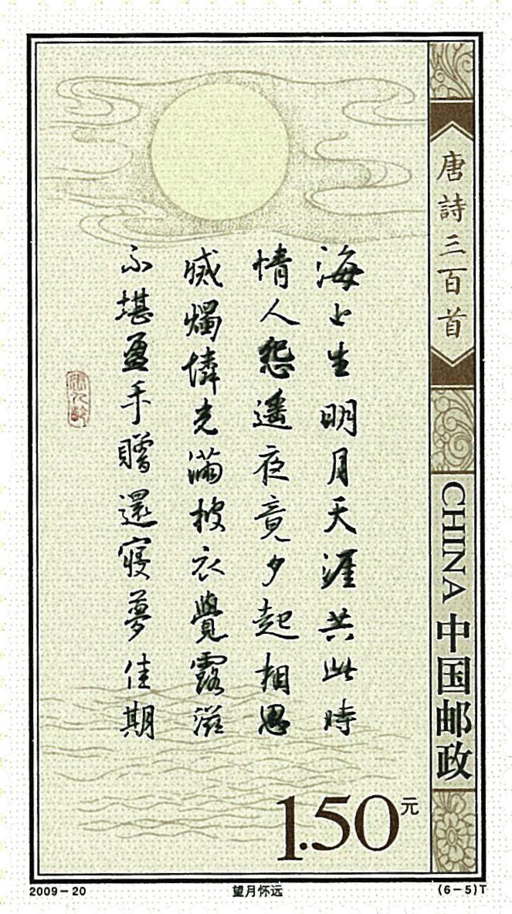 唐詩三百首
CHINA 中国邮政
海上生明月天涯共此時
情人怨遥夜竟夕起相思
滅燭憐光滿披衣覺露滋
不堪盈手贈還寢夢佳期
張九齡
1.50元
2009-20
望月怀远
(6-5)T